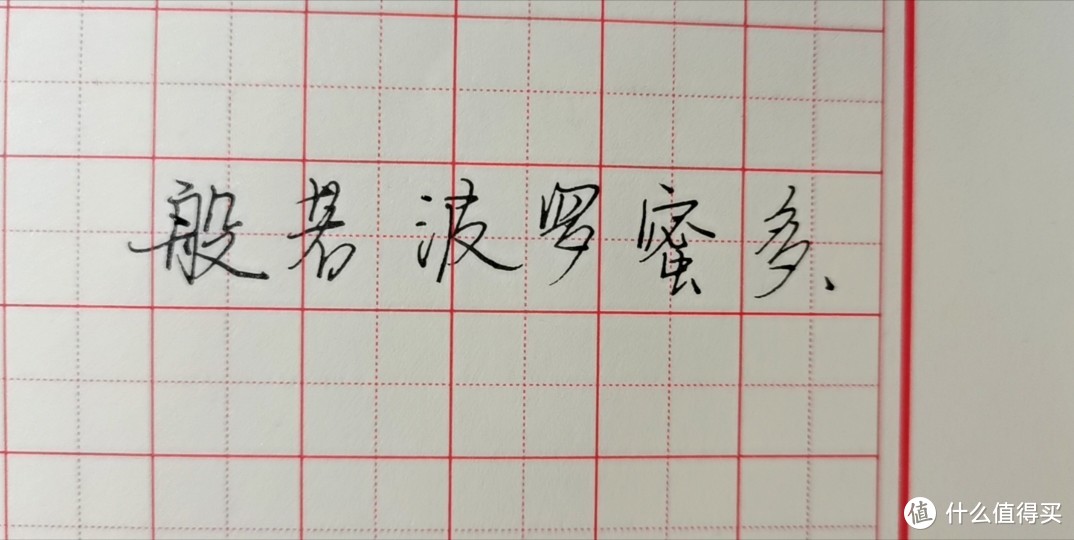 般若波罗蜜多、
值 什么值得买